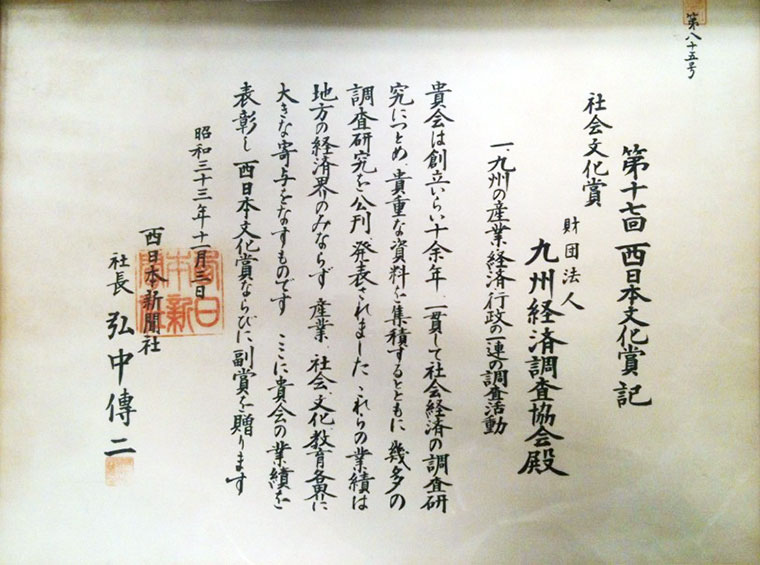 第八十五号
第十七回 西日本文化賞記
社会文化賞
財団法人
九州経済調査協会殿
一、九州の産業経済行政の一連の調査活動
貴会は創立いらい十余年、一貫して社会経済の調査研
究につとめ、貴重な資料を集積するとともに、幾多の
調査研究を公刊、発表されました これらの業績は
地方の経済界のみならず 産業、社会、文化、教育各界に
大きな寄与をなすものです ここに貴会の業績を
表彰し 西日本文化賞ならびに副賞を贈ります
昭和三十三年十一月三日
西日本新聞社
社長 弘中傳二